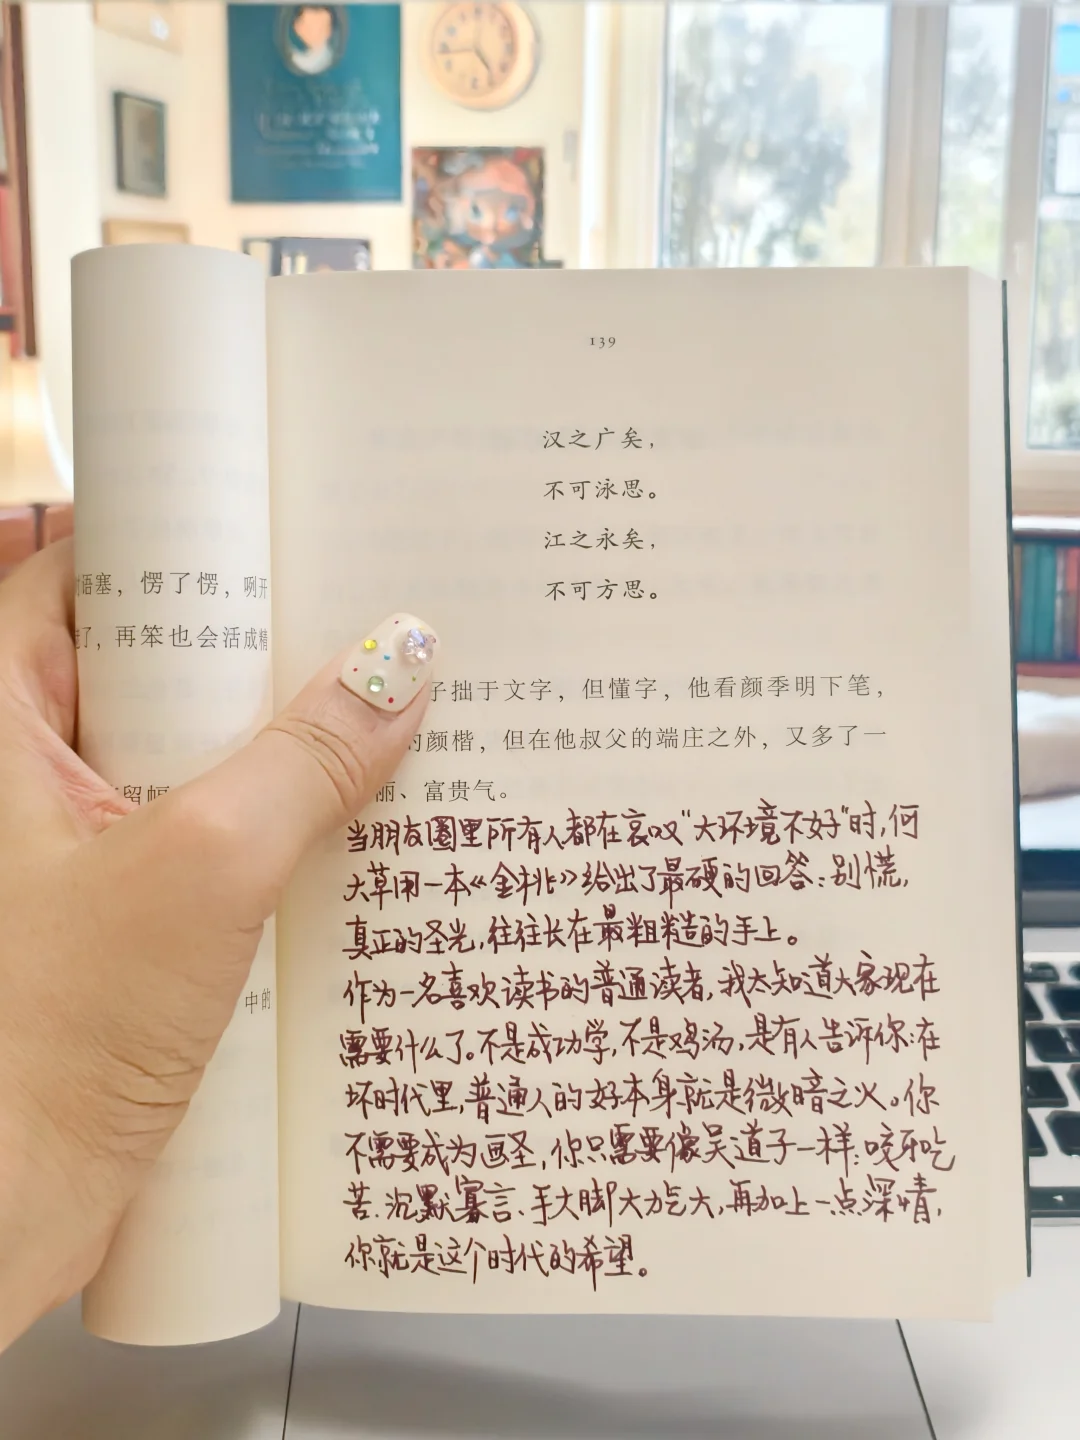 139
汉之广矣，
不可泳思。
江之永矣，
不可方思。
语塞，愣了愣，咧开
了，再笨也会活成精
留幅
中的
子拙于文字，但懂字，他看颜季明下笔，
的颜楷，但在他叔父的端庄之外，又多了一
丽、富贵气。
当朋友圈里所有人都在哀叹"大环境不好"时，何
大草用一本《金桃》给出了最硬的回答：别慌，
真正的圣光，往往长在最粗糙的手上。
作为一名喜欢读书的普通读者，我太知道大家现在
需要什么了。不是成功学，不是鸡汤，是有人告诉你：在
坏时代里，普通人的好本身就是微暗之火。你
不需要成为画圣，你只需要像吴道子一样：咬牙吃
苦、沉默寡言、手大脚大力气大，再加上一点深情，
你就是这个时代的希望。